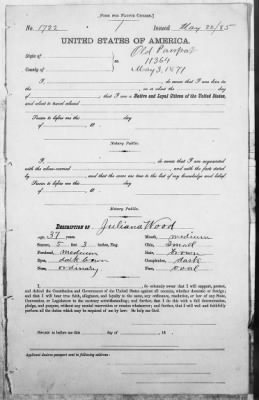 [FORM FOR NATIVE CITIZEN.]
No. 1722 Issued May 22/85
UNITED STATES OF AMERICA.
State of
Old Passport
ss:
11364
County of
May 3, 1877
I, , do swear that I was born in
the , on or about the day
of , ; that I am a Native and Loyal Citizen of the United States,
and about to travel abroad.
Sworn to before me this day
of , 18 .
Notary Public.
I, , do swear that I am acquainted
with the above-named , and with the facts stated
by , and that the same are true to the best of my knowledge and belief.
Sworn to before me this day
of , 18 .
Notary Public.
DESCRIPTION OF Juliana Wood
Age, 37 years. Mouth, medium
Stature, 5 feet 3 inches, Eng. Chin, Small
Forehead, medium Hair, brown
Eyes, dark brown Complexion, dark
Nose, ordinary Face, oval
I, , do solemnly swear that I will support, protect,
and defend the Constitution and Government of the United States against all enemies, whether domestic or foreign;
and that I will bear true faith, allegiance, and loyalty to the same, any ordinance, resolution, or law of any State,
Convention or Legislature to the contrary notwithstanding; and further, that I do this with a full determination,
pledge, and purpose, without any mental reservation or evasion whatsoever; and further, that I will well and faithfully
perform all the duties which may be required of me by law. So help me God.
Sworn to before me this day of , 18 .
Applicant desires passport sent to following address: